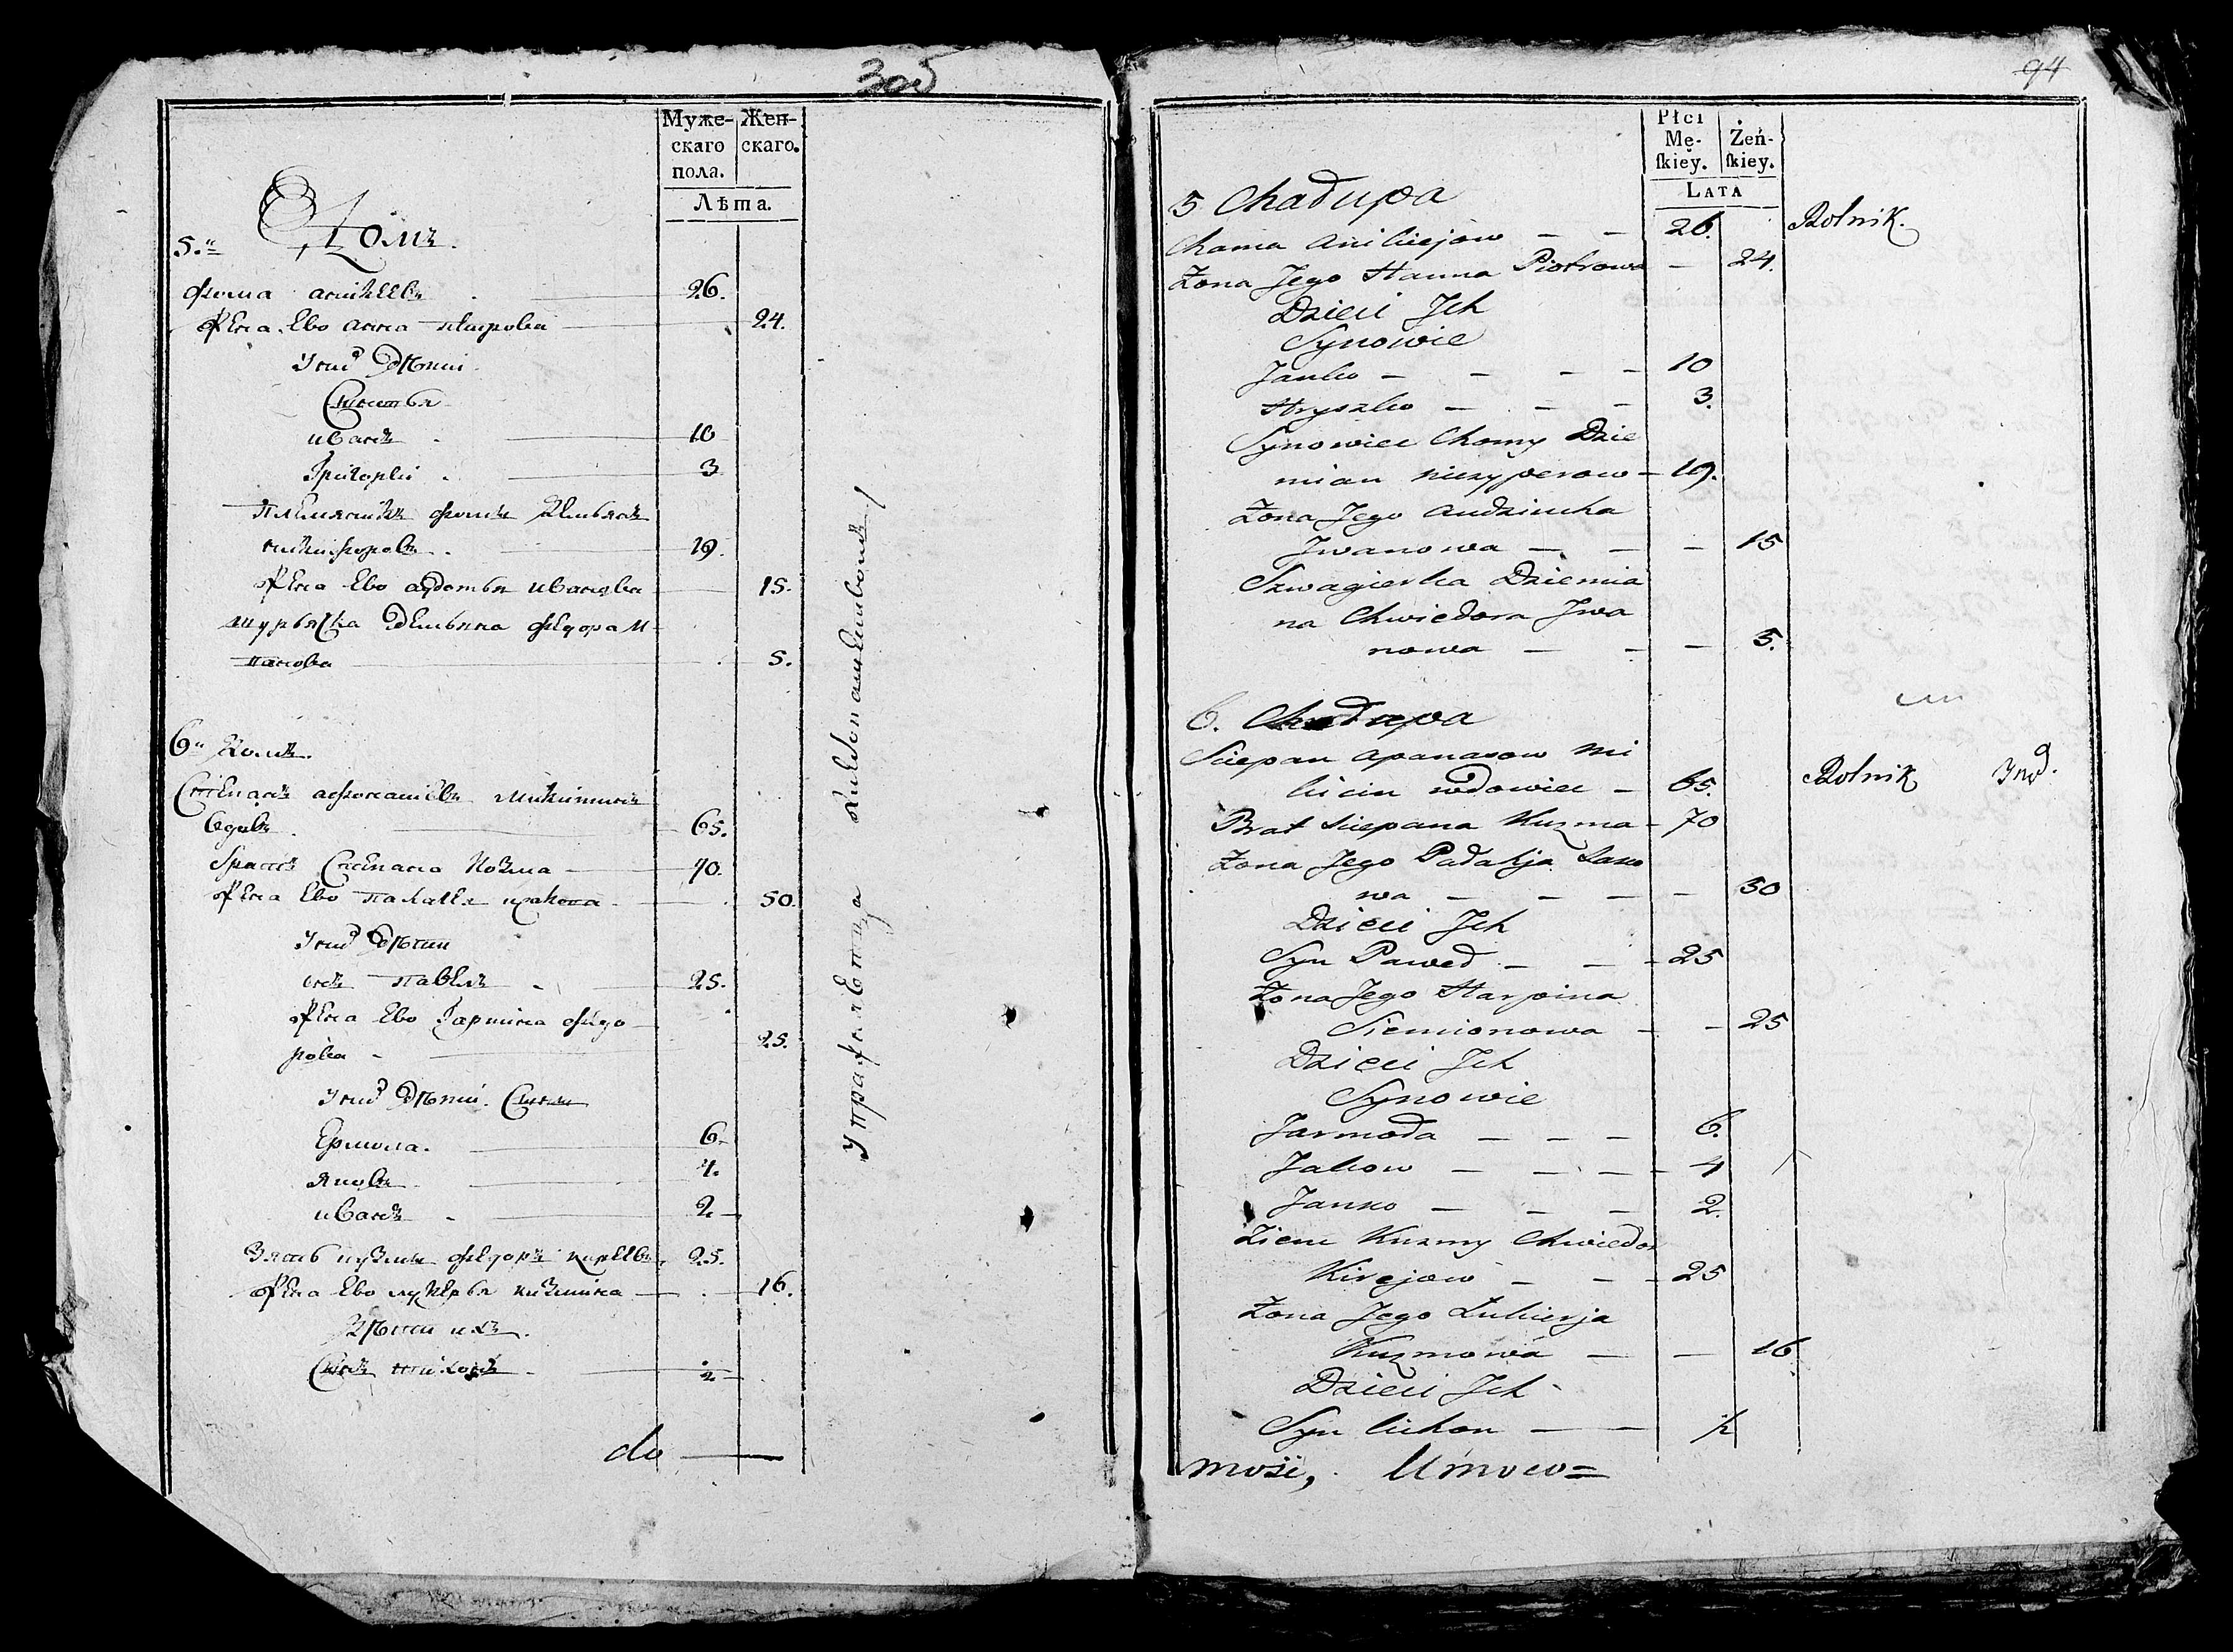 305
Муже-
скаго
пола.
Жен-
скаго.
Лѣта.
5.й Домъ.
Фома аникеевъ 26.
Жена Ево анна петрова 24.
У них дѣти
Сыновья
иванъ 10
Григорей 3
племянникъ фомы демьянъ
никифоровъ 19.
Жена Ево авдотья иванова 15.
демьяна федора и
ванова 5.
6й Домъ.
Степанъ афонасьевъ
вдовъ 65.
братъ Степана Козма 70.
Жена Ево палагея 50.
У них дѣти
снъ павелъ 25.
Жена Ево федо
рова 25.
У них дѣти Сыны
Ермола. 6
яковъ 4.
иванъ 2
Зять кузмы федоръ киреевъ 25.
Жена Ево лукерья кузмина 16.
Дѣти ихъ.
Снъ тихонъ 1/2
do
94
Płci
Mę-
ſkiey.
Żeń-
ſkiey.
LATA
5 Chałupa
Choma Anikiejow 26. Rolnik.
Żona Jego Hanna Piotrowa 24.
Dzieci Jch
Synowie
Janko 10
Hryszko 3.
Synowiec Chomy Dzie
mian nikyperow 19.
Żona Jego Audziucha
Jwanowa 15
Szwagierka Dziemia
na Chwiedora Jwa
nowa 5.
6. Chałupa
Sciepan Apanasow Mi
kicin wdowiec 65. Rolnik
Brat Sciepana Kuzma 70
Żona Jego Pałahja
wa 50
Dzieci Jch
Syn Paweł 25
Żona Jego Harpina
Siemionowa 25
Dzieci Jch
Synowie
Jarmoła 6.
Jakow 4
Janko 2.
Zienc Kuzmy Chwiedor
Kirejow 25
Żona Jego Łukierja
Kuzmowa 16
Dzieci Jch
Syn Cichon 1/2
mosi, Umowo=